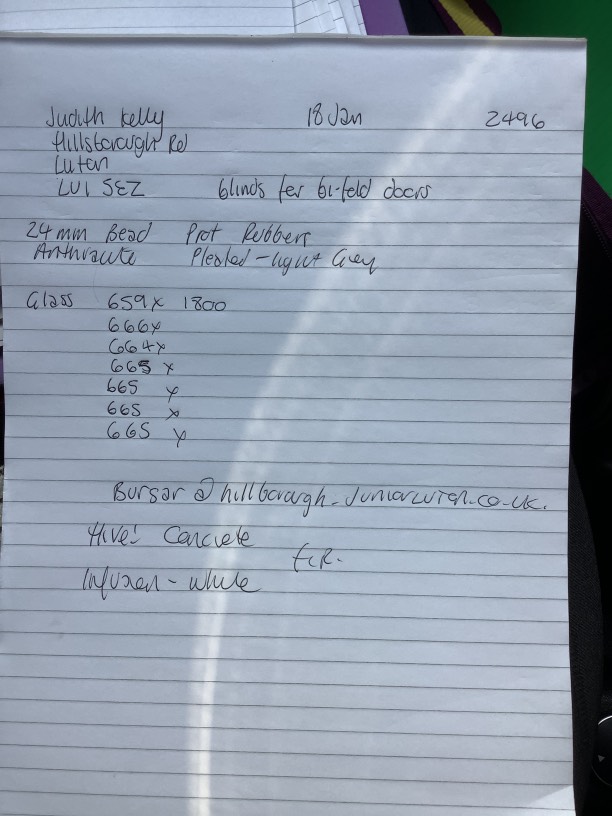 Judith Kelly 18 Jan 2496
Hillsborough Rd
Luton
LU1 5EZ blinds for bi-fold doors
24mm Bead Prot Rubbers
Anthracite Pleated - Light Grey
Glass 659 x 1800
666 x
664 x
665 x
665 x
665 x
665 x
Bursar @ hillborough-juniorluton.co.uk.
Hive! Concrete
FCR.
Infusion - white